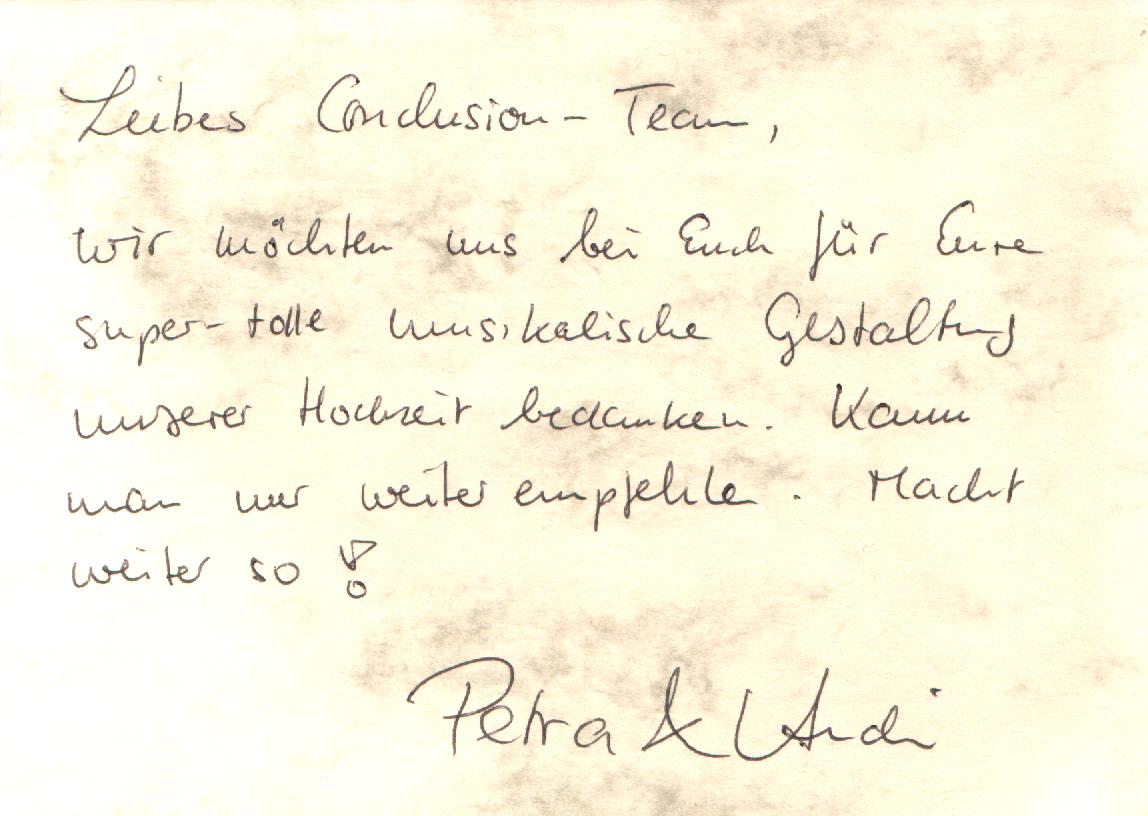 Liebes Conclusion-Team,
wir möchten uns bei Euch für Eure
super-tolle musikalische Gestaltung
unserer Hochzeit bedanken. Kann
man nur weiter empfehlen. Macht
weiter so!
Petra & Andi